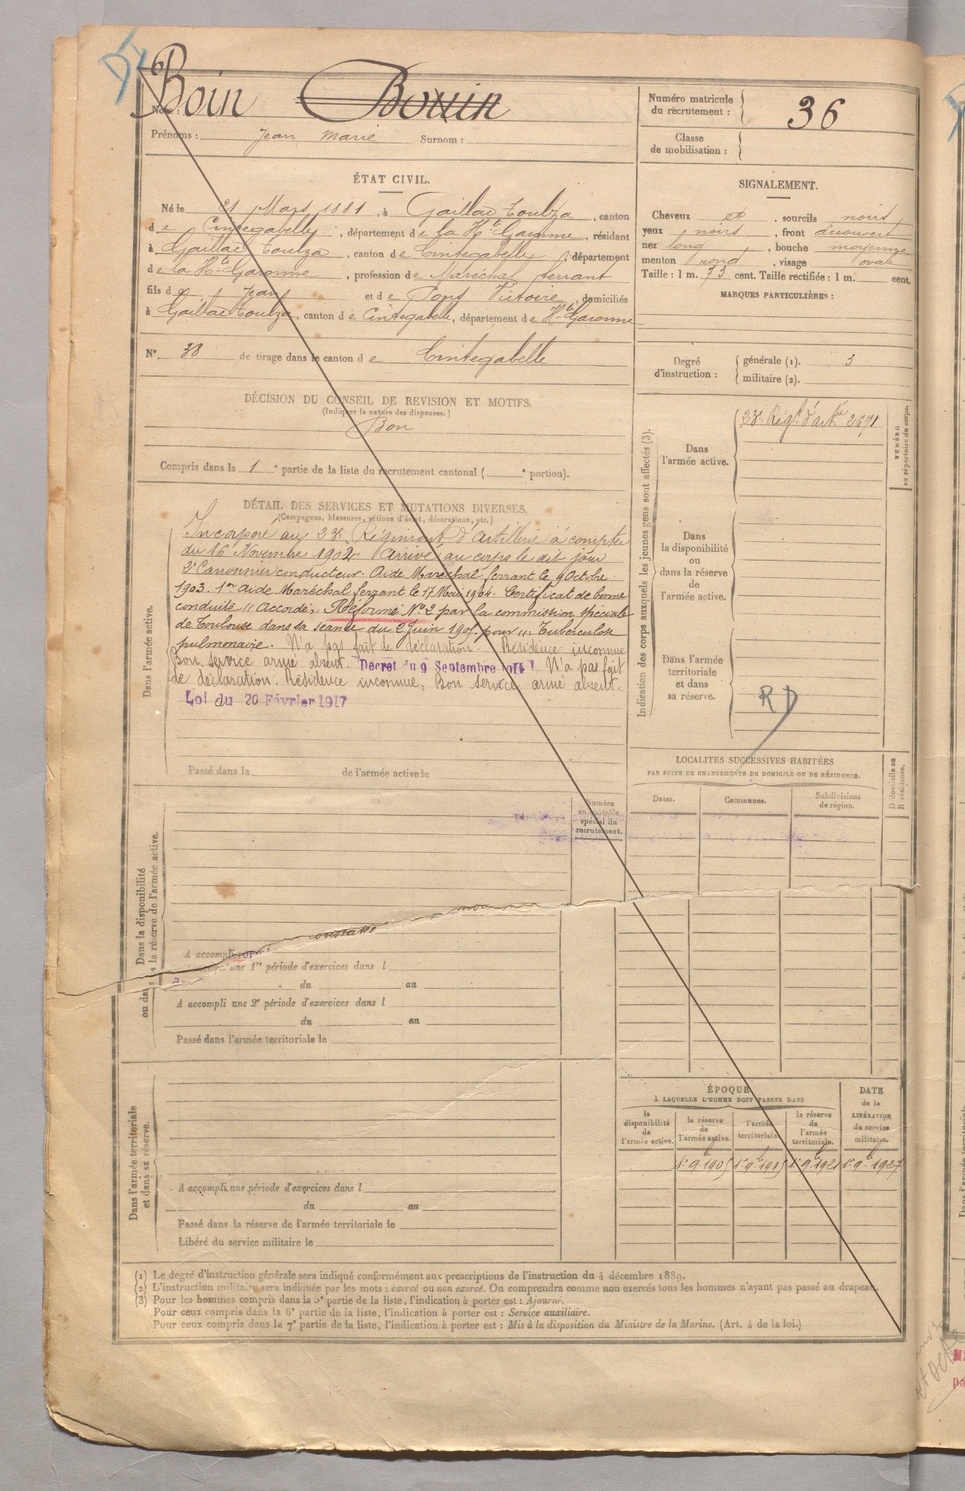 Boin Bouin
Nom :
Prénoms : Jean Marie Surnom :
Numéro matricule
du recrutement : 36
Classe
de mobilisation :
ÉTAT CIVIL.
Né le 21 Mars 1881, à Gaillac Toulza, canton
de Cintegabelle, département de la Hte Garonne, résidant
à Gaillac Toulza, canton de Cintegabelle, département
de la Hte Garonne, profession de Maréchal ferrant
fils de Jean et de Pons Victoire, domiciliés
à Gaillac Toulza, canton de Cintegabelle, département de Hte Garonne
N° 38 de tirage dans le canton de Cintegabelle
SIGNALEMENT.
Cheveux et, sourcils noirs,
yeux noirs, front découvert
nez long, bouche moyenne
menton rond, visage ovale
Taille : 1 m. 73 cent. Taille rectifiée : 1 m. cent.
MARQUES PARTICULIÈRES :
Degré
d'instruction :
générale (1). 3
militaire (2).
DÉCISION DU CONSEIL DE REVISION ET MOTIFS.
(Indiquer la nature des dispenses.)
Bon
Compris dans la 1e partie de la liste du recrutement cantonal ( e portion).
DÉTAIL DES SERVICES ET MUTATIONS DIVERSES.
(Campagnes, blessures, actions d'éclat, décorations, etc.)
Dans l'armée active.
Incorporé au 23e Régiment d'Artillerie à compter
du 16 Novembre 1902. Arrivé au corps le dit jour
2e Canonnier conducteur. Aide Maréchal ferrant le 9 Octobre
1903. 1er Aide Maréchal ferrant le 17 Mai 1904. Certificat de bonne
conduite "Accordé". Réformé N° 2 par la commission spéciale
de Toulouse dans sa séance du 2 Juin 190. pour "Tuberculose
pulmonaire. N'a pas fait de déclaration. Résidence inconnue
Bon service armé absent. Décret du 9 Septembre 1914. N'a pas fait
de déclaration. Résidence inconnue. Bon service armé absent.
Loi du 20 Février 1917
Passé dans la de l'armée active le
Indication des corps auxquels les jeunes gens sont affectés (3).
NUMÉRO
au répertoire du corps.
Dans
l'armée active.
23e Régt d'artie 2671
Dans
la disponibilité
ou
dans la réserve
de
l'armée active.
Dans l'armée
territoriale
et dans
sa réserve.
RD
LOCALITÉS SUCCESSIVES HABITÉES
PAR SUITE DE CHANGEMENTS DE DOMICILE OU DE RÉSIDENCE.
Dates. Communes. Subdivisions
de région.
D domicile ou
R résidence.
Dans la disponibilité
ou dans la réserve de l'armée active.
Numéro
au contrôle
spécial du
recrutement.
A accompli
une 1re période d'exercices dans l
du au
A accompli une 2e période d'exercices dans l
du au
Passé dans l'armée territoriale le
Dans l'armée territoriale
et dans sa réserve.
A accompli une période d'exercices dans l
du au
Passé dans la réserve de l'armée territoriale le
Libéré du service militaire le
ÉPOQUE
À LAQUELLE L'HOMME DOIT PASSER DANS
la
disponibilité
de
l'armée active.
la réserve
de
l'armée active.
l'armée
territoriale.
la réserve
de
l'armée
territoriale.
DATE
de la
LIBÉRATION
du service
militaire.
1er 9bre 1905 1er 9bre 1915 1er 9bre 1921 1er 9bre 1927
(1) Le degré d'instruction générale sera indiqué conformément aux prescriptions de l'instruction du 4 décembre 1889.
(2) L'instruction militaire sera indiquée par les mots : exercé ou non exercé. On comprendra comme non exercés tous les hommes n'ayant pas passé au drapeau.
(3) Pour les hommes compris dans la 5e partie de la liste, l'indication à porter est : Ajourné.
Pour ceux compris dans la 6e partie de la liste, l'indication à porter est : Service auxiliaire.
Pour ceux compris dans la 7e partie de la liste, l'indication à porter est : Mis à la disposition du Ministre de la Marine. (Art. 4 de la loi.)